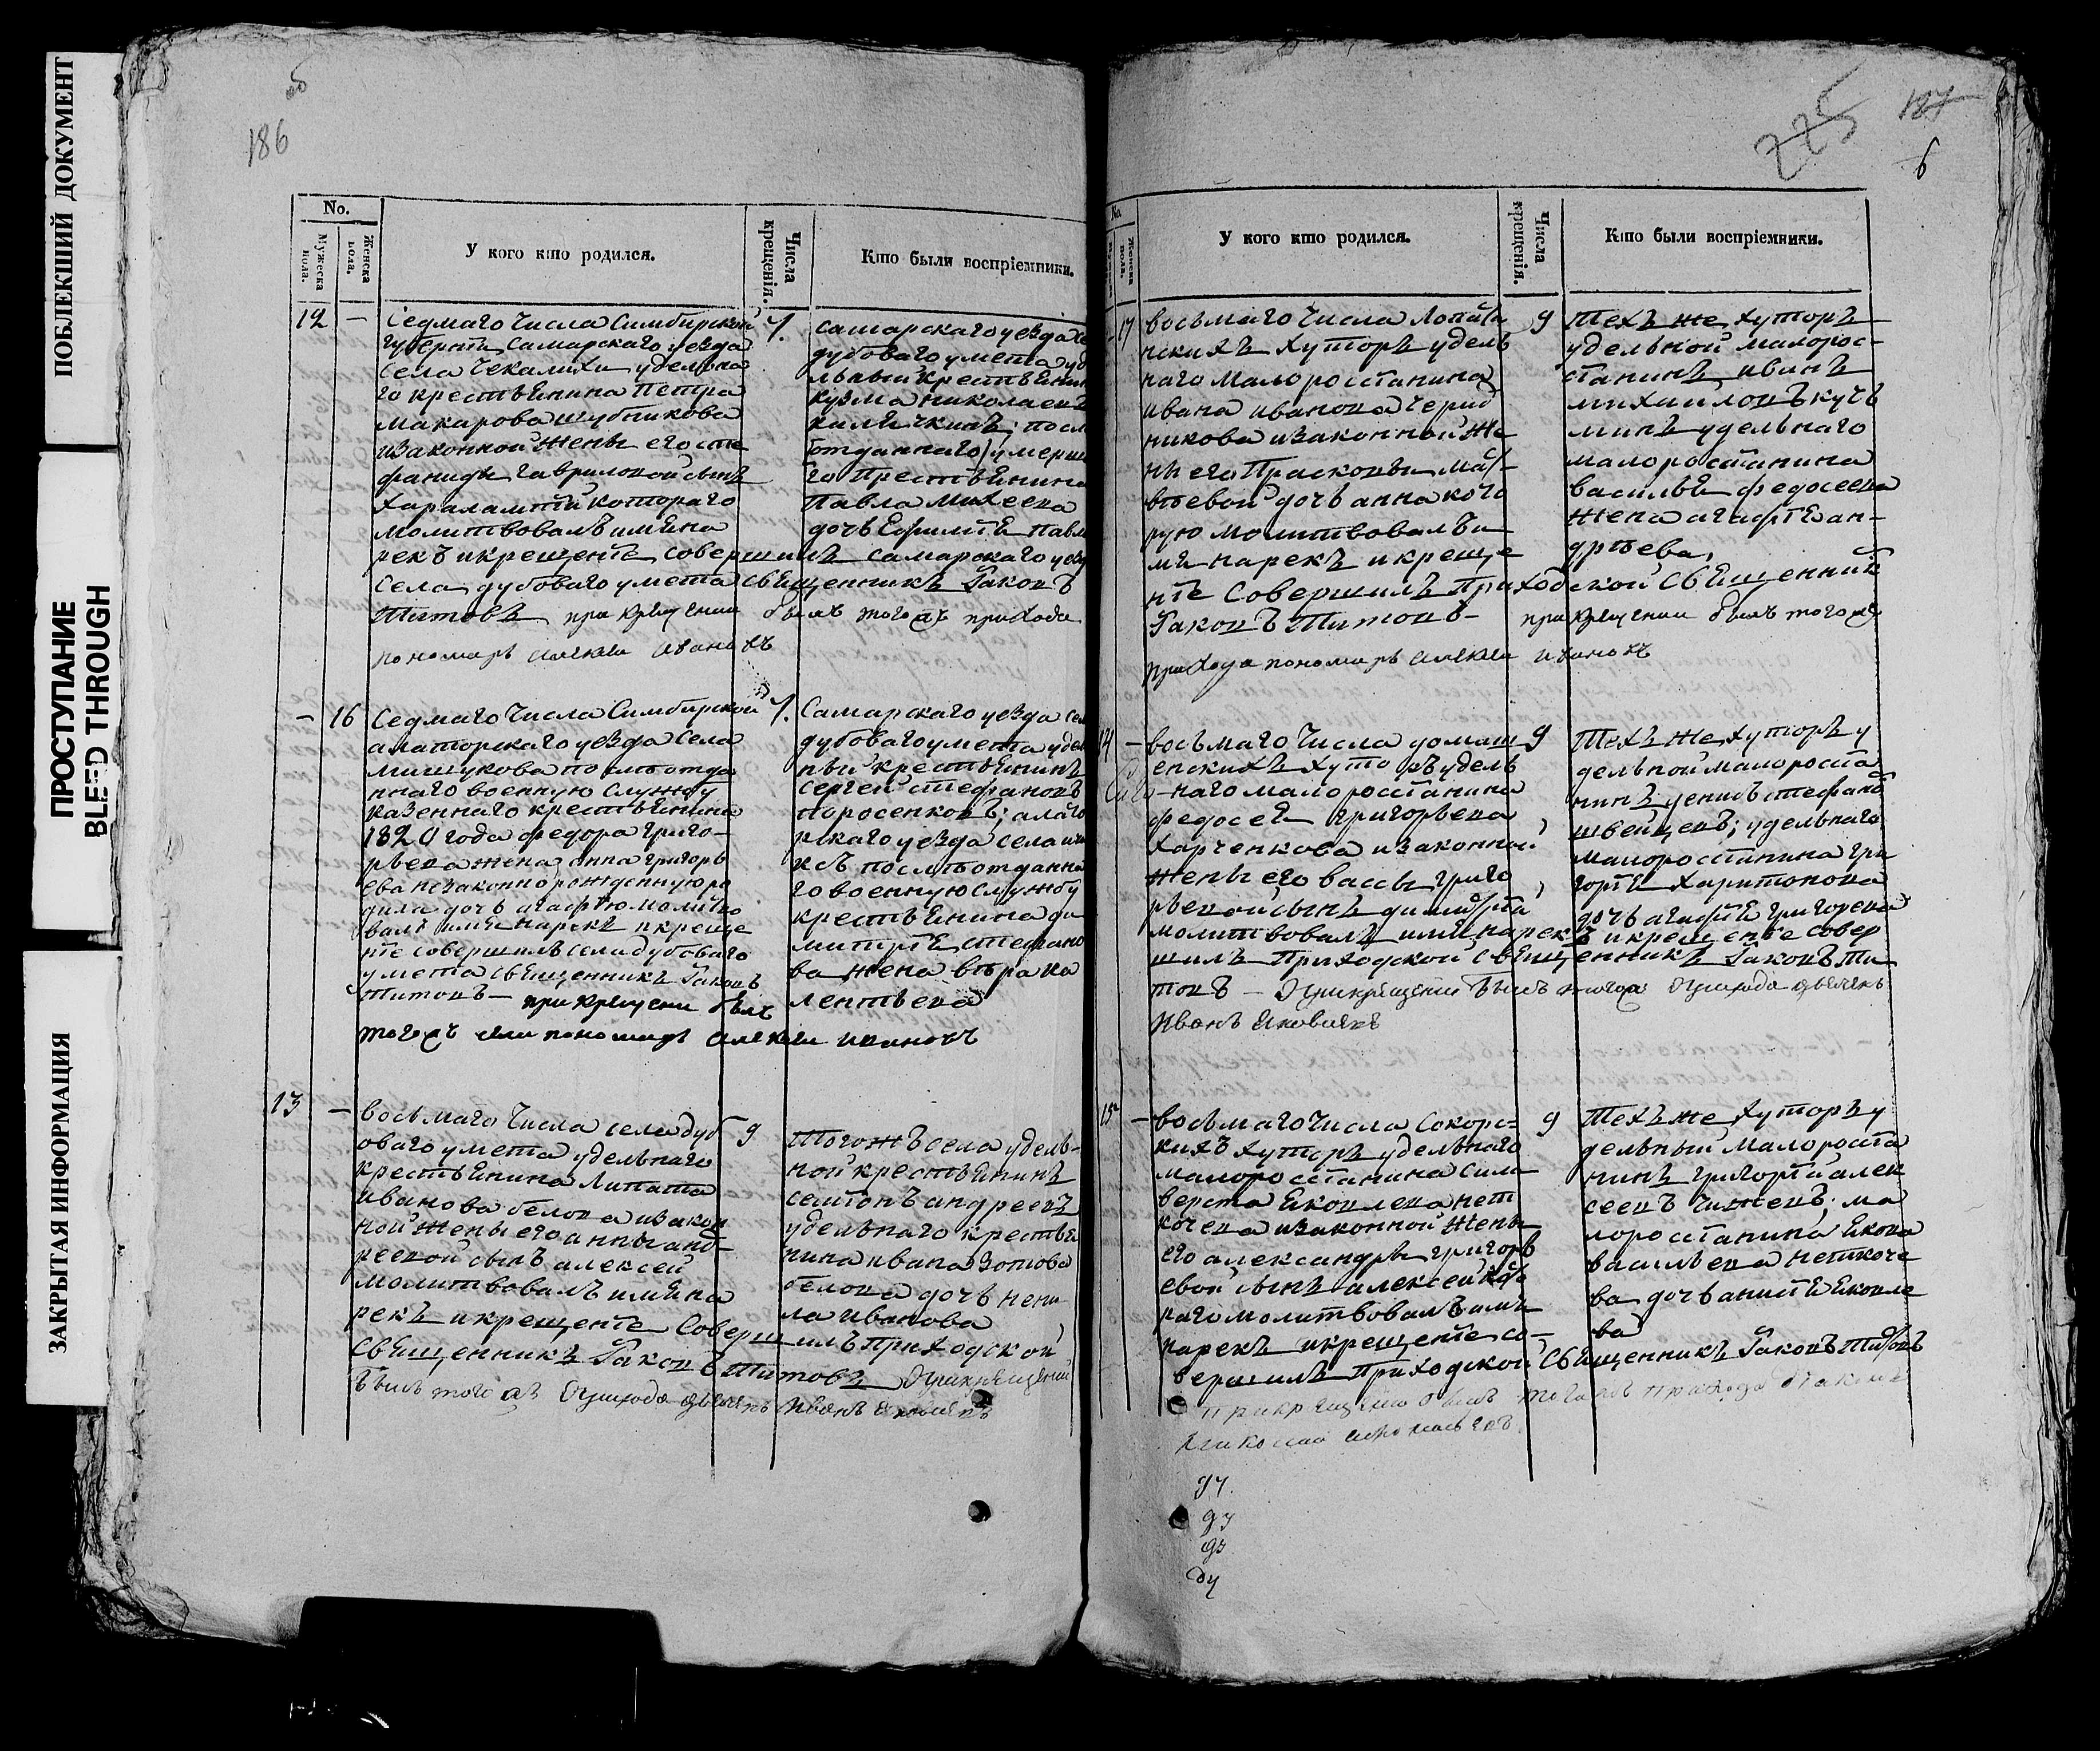 ПОБЛЕКШИЙ ДОКУМЕНТ
ПРОСТУПАНИЕ
BLEED THROUGH
ЗАКРЫТАЯ ИНФОРМАЦИЯ
об
186
No.
Мужеска пола.
Женска пола.
У кого кто родился.
Числа крещенія.
Кто были воспріемники.
12 —
Седмаго числа Симбирской
губерніи Самарскаго уезда
села Чекалихи удельна
го крестьянина Петра
Макарова Шубникова
изаконной жены его сте
фаниды гавриловой сынъ
Харалампій котораго
молитвовалъ имяна
рекъ икрещеніе совершилъ самарскаго уез
села дубоваго умета священникъ Іаковъ
Титовъ при крещении былъ тогожъ прихода
пономарь алекси ивановъ
7.
самарскаго уезда
дубоваго умета уд
льный крестьянин
кузма николаевъ
посл
отданнаго умерш
го крестьянина
Павла Михеева
дочь Ефимія Павл
— 16
Седмаго числа Симбирской
алаторскаго уезда села
мишукова послѣ отда
ннаго военную службу
казеннаго крестьянина
1820 года федора григо-
рьева жена анна григорь
ева незаконнорожденную ро
дила дочь агафію молитво
валъ имя нарекъ икреще
ніе совершилъ села дубоваго
умета священникъ Іаковъ
Титовъ — при крещени былъ
тогожъ села пономарь алекси ивановъ
7.
Самарскаго уезда сел
дубоваго умета удел
ный крестьянинъ
сергей стефановъ
поросенковъ; алато
рскаго уезда села
послѣ отданна
го военную службу
крестьянина ди
митрія стефано
ва жена вѣра ка
лентьева
13 —
восьмаго числа села дуб
оваго умета удельнаго
крестьянина Липата
иванова белова изакон
ной жены его анны анд-
реевой сынъ алексей
молитвовалъ имяна
рекъ икрещеніе совершилъ приходской
священникъ Іаковъ Титовъ при крещении
былъ тогожъ прихода дьячекъ Иванъ Яковлевъ
9
тогожъ села удель-
ной крестьянинъ
семіонъ андреевъ
удельнаго крестья
нина ивана зотова
белова дочь нени
ла иванова
225
187
6
No
Женска пола.
У кого кто родился.
Числа крещенія.
Кто были воспріемники.
— 17
восьмаго числа Лопати
нскихъ хуторъ удель
наго малороссіанина
ивана иванова черид
никова изаконной же
ны его Прасковьи мат-
вѣевой дочь анна кото
рую молитвовалъ и
мя нарекъ и креще
ніе совершилъ приходской священникъ
Іаковъ Титовъ — при крещении былъ тогожъ
прихода пономарь алекси ивановъ
9
техъ же хуторъ
удельной малорос-
сіанинъ иванъ
михаиловъ кучь
минъ удельнаго
малороссіанина
василья федосеева
жена агафія ан-
дрѣева,
14 —
восьмаго числа домаш
енскихъ хуторъ удель
наго малороссіанина
федосея григорьева
Харченкова изаконной
жены его вассы григо
рьевой сынъ димитрій
молитвовалъ имя нарекъ и крещеніе совер
шилъ приходской священникъ Іаковъ Ти
товъ — при крещении былъ тогожъ прихода дьячекъ
Иванъ Яковлевъ
9
техъ же хуторъ у
дельной малороссіа
нинъ денисъ стефано
швейцевъ; удельнаго
малороссіанина гри
горія харитонова
дочь агафія григорева
15 —
восьмаго числа Сокорс-
кихъ хуторъ удельнаго
малороссіанина сили
верста яковлева нет
кочева изаконной жены
его александры григорь
евой сынъ алексей кото
раго молитвовалъ имя
нарекъ икрещеніе со-
вершилъ приходской священникъ Іаковъ Титовъ
при крещении былъ тогожъ прихода дьяконъ
9
техъ же хуторъ у
дельный малоросіа
нинъ григорій алек
сеевъ чижевъ; ма
лороссіанина якова
васильева неткоче
ва дочь анисія яковле
ва